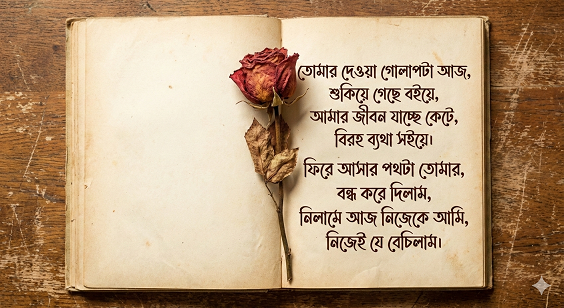 তোমার দেওয়া গোলাপটা আজ,
শুকিয়ে গেছে বইয়ে,
আমার জীবন যাচ্ছে কেটে,
বিরহ ব্যথা সইয়ে।
ফিরে আসার পথটা তোমার,
বন্ধ করে দিলাম,
নিলামে আজ নিজেকে আমি,
নিজেই যে বেচিলাম।